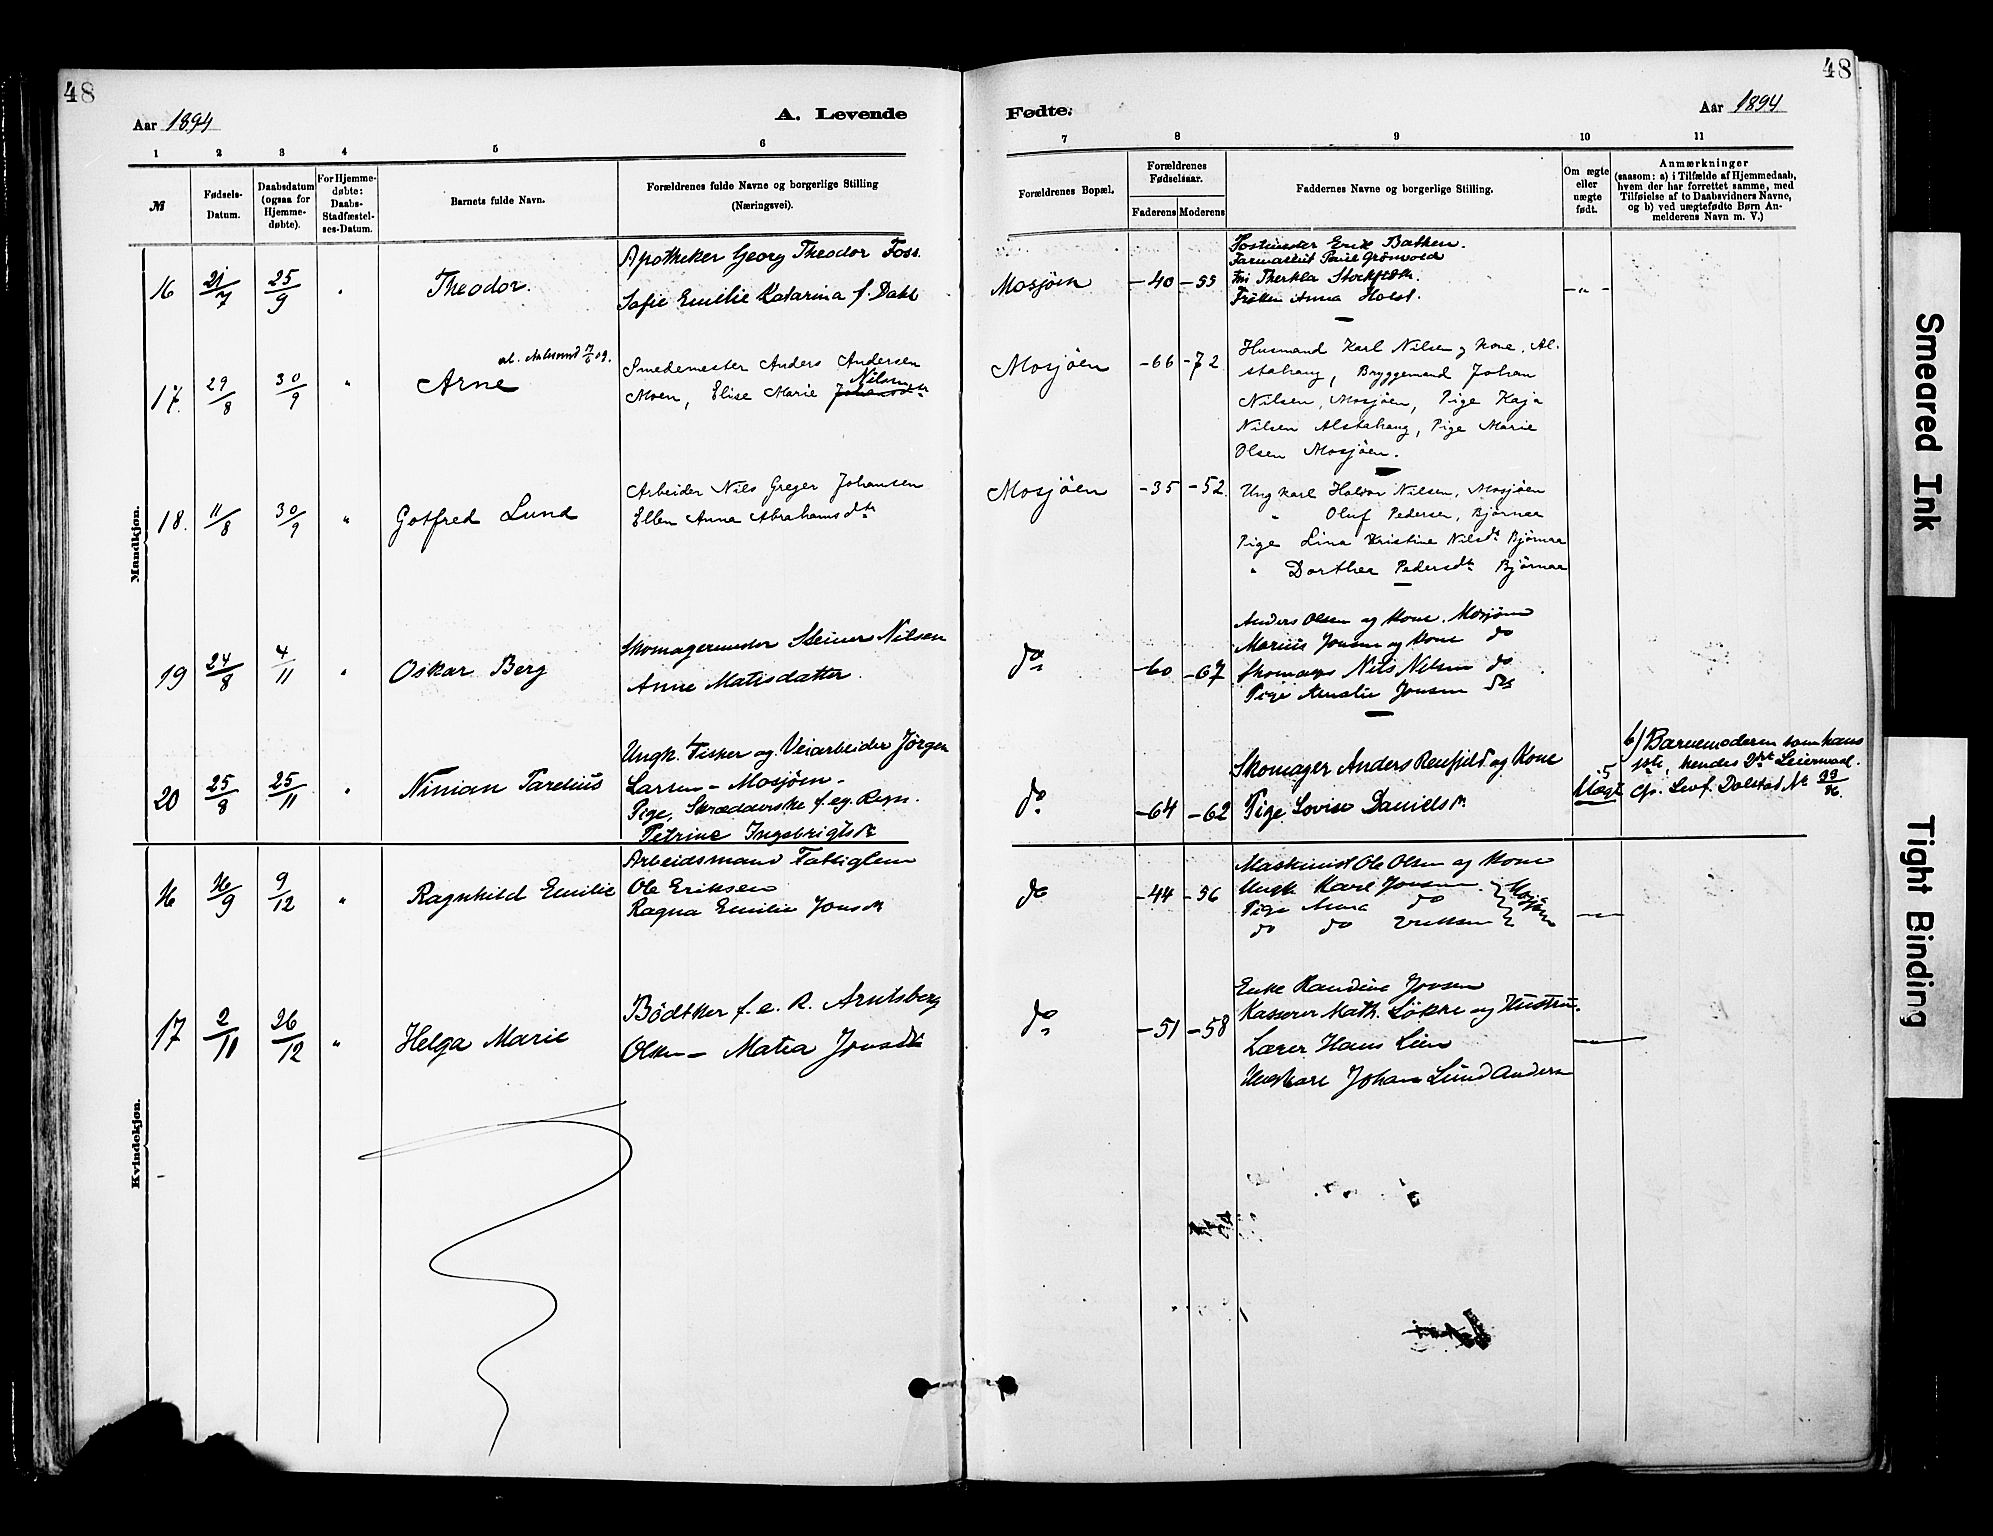 48
48
Aar 1894
A. Levende
Fødte.
Aar 1894
1 2 3 4 5 6 7 8 9 10 11
№
Fødsels-
Datum.
Daabsdatum
(ogsaa for
Hjemme-
døbte).
For Hjemme-
døbte:
Daabs-
Stadfæstel-
ses-Datum.
Barnets fulde Navn.
Forældrenes fulde Navne og borgerlige Stilling
(Næringsvei).
Forældrenes Bopæl.
Forældrenes
Fødselsaar.
Faderens Moderens
Faddernes Navne og borgerlige Stilling.
Om ægte
eller
uægte
født.
Anmærkninger
(saasom: a) i Tilfælde af Hjemmedaab,
hvem der har forrettet samme, med
Tilføielse af to Daabsvidners Navne,
og b) ved uægtefødte Børn An-
melderens Navn m. V.)
Mandkjøn.
16 21/7 25/9 " Theodor.
Apotheker Georg Theodor Foss.
Sofie Emilie Katarina f. Dahl
Mosjøen -40 -55
Erik Bakken.
Thekla Stockfleth
Frøken Anna Holst.
- " -
17. 29/8 30/9 " Arne
Smedemester Anders Andersen
Moen, Elise Marie Nilsen
Mosjøen -66 -72
Husmand Karl Nilsen og Kone, Al-
stahaug, Bryggemand Johan
Nilsen, Mosjøen, Pige Kaja
Nilsen Alstahaug, Pige Marie
Olsen Mosjøen.
18. 11/8 30/9 " Gotfred Lund
Arbeider Nils Greger Johansen
Ellen Anna Abrahamsdtr
Mosjøen -35 -52.
Ungkarl Haldor Nilsen, Mosjøen
" Oluf Pedersen, Bjørnaa
Pige Lina Kristine Nilsdtr Bjørnaa
" Dorthea Pedersdtr Bjørnaa
19 24/8 4/11 " Oskar Berg
Steiner Nilsen
Anne Matisdatter.
do -60 -67
Anders Olsen og Kone. Mosjøen
Marius Jonsen og Kone do
Nils Nilsen do
Pige Amalie Jonsen do
20 25/8 25/11 " Ninian Parelius
Ungk. Fisker og Veiarbeider Jørgen
Larsen - Mosjøen -
Pige, Skrædderske f. eg. Regn.
Petrine Ingebrigtsdtr
do -64 -62
Skomager Anders Renfjeld og Kone
Pige Lovise Danielsdr.
5
Uægt
b) Barnemoderen som hans
1ste, hendes 2det Leiermaal.
Kvindekjøn.
16 16/9 9/12 " Ragnhild Emilie
Arbeidsmand Fattiglem
Ole Eriksen
Ragna Emilie Jonsdtr
do -44 -56
Maskinist Ole Olsen og Kone
Ungk. Karl Jonsen
Pige Anna do
do do Eriksen
17 2/11 26/12 " Helga Marie
Bødtker f. e. R. Arntsberg
Olsen - Matea Jonsdtr
do -51 -58
Enke Randine Jonsen
Kasserer Math. Løkke og Hustru.
Lærer Hans Lien
Ungkarl Johan Lund Anders
Smeared Ink
Tight Binding